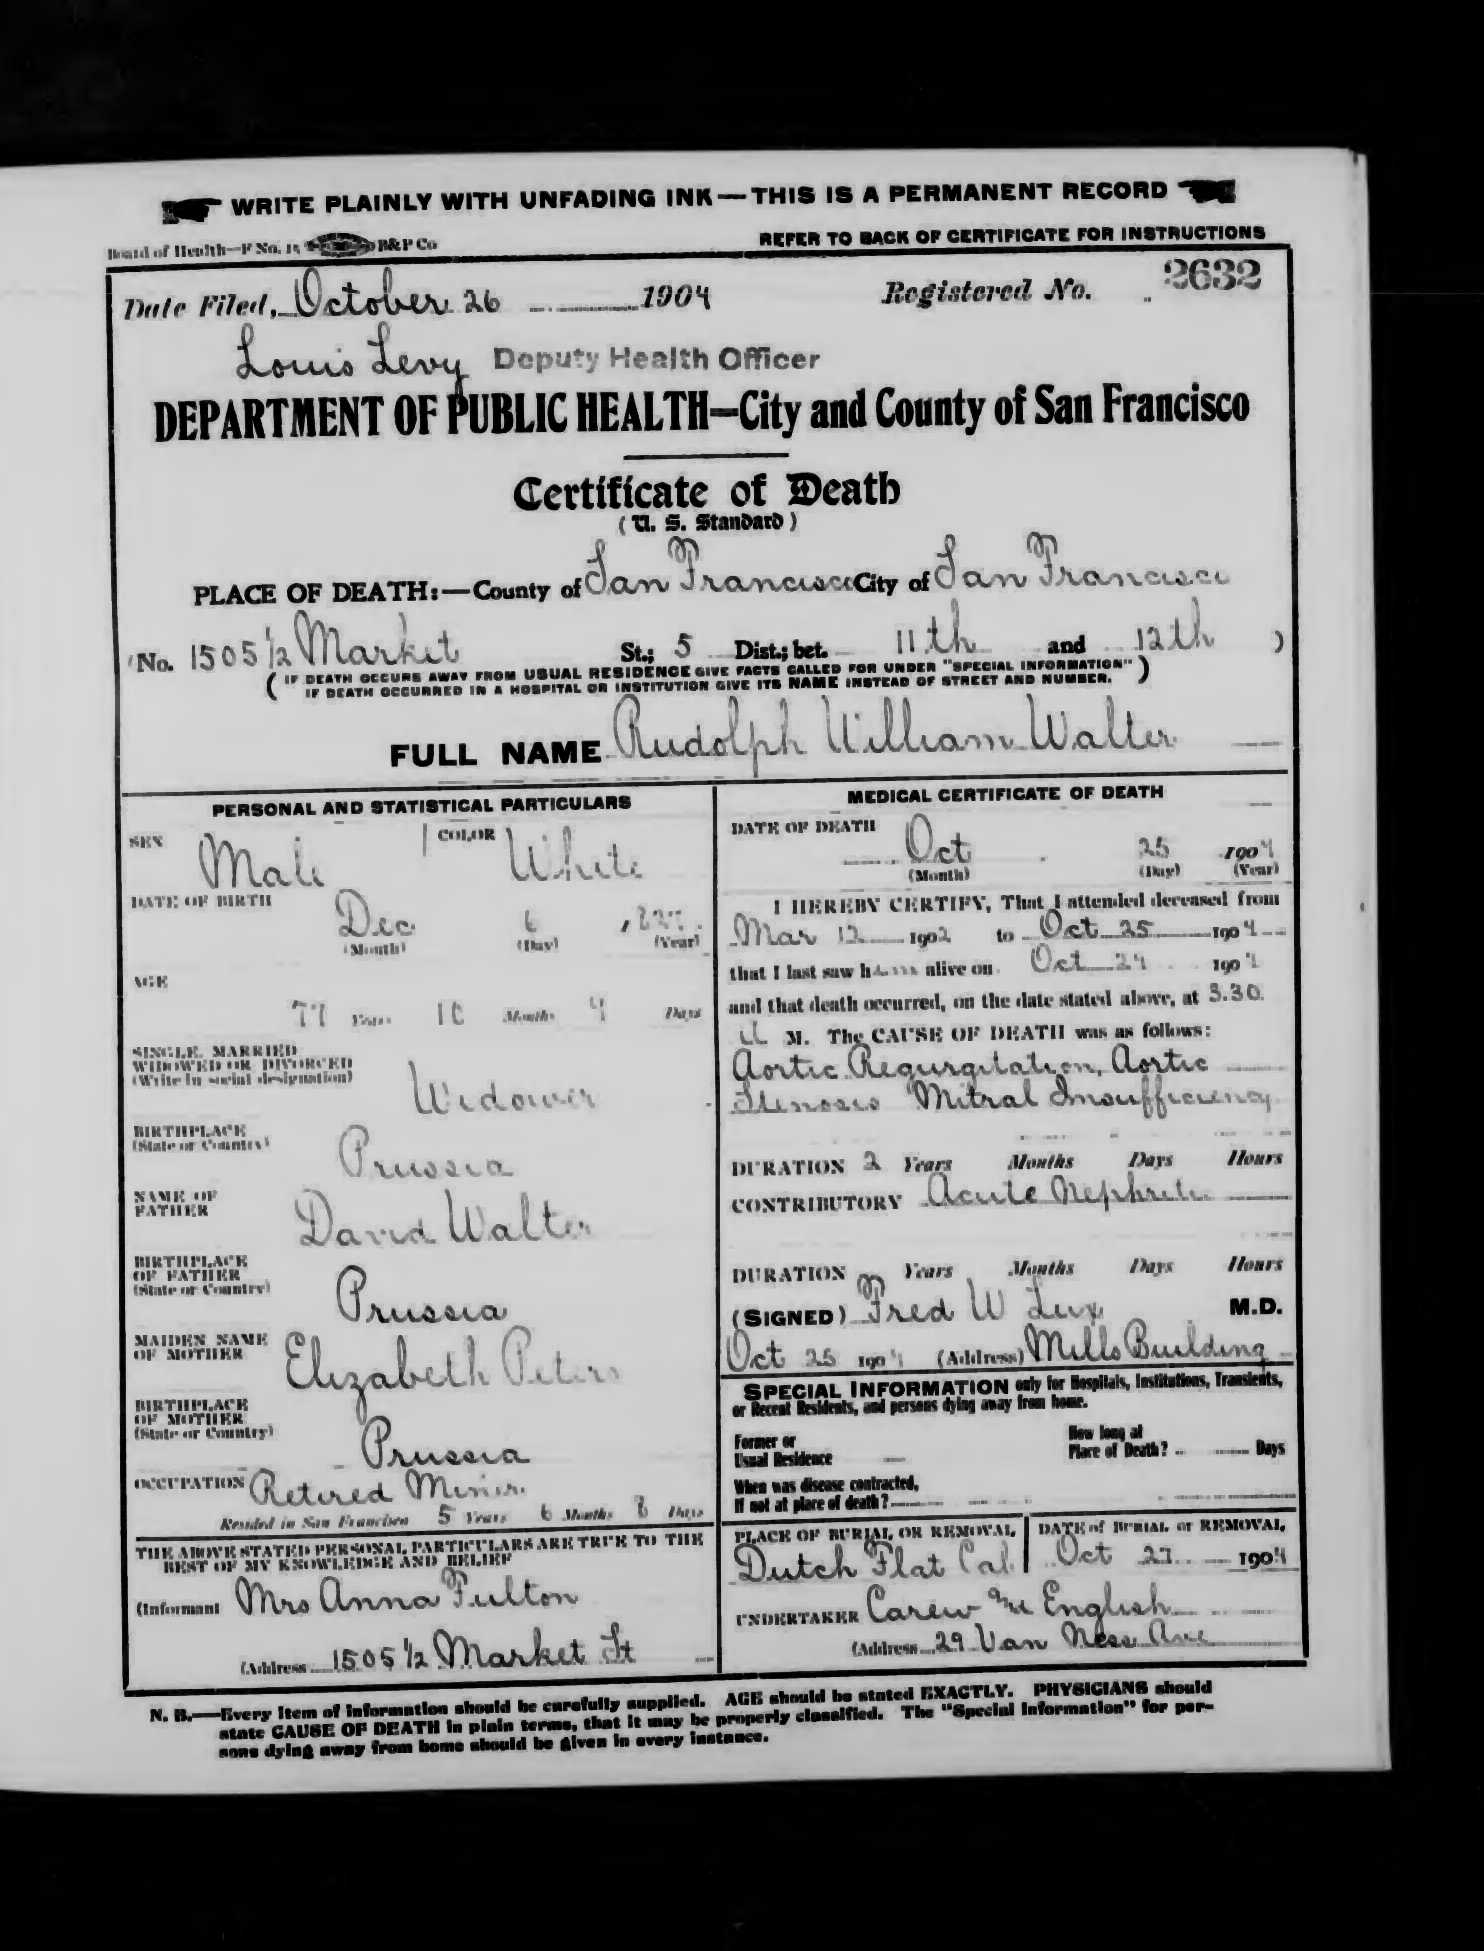 WRITE PLAINLY WITH UNFADING INK — THIS IS A PERMANENT RECORD
Board of Health—F No. 15 B&P Co
REFER TO BACK OF CERTIFICATE FOR INSTRUCTIONS
Date Filed, October 26 1904 Registered No. 2632
Louis Levy Deputy Health Officer
DEPARTMENT OF PUBLIC HEALTH—City and County of San Francisco
Certificate of Death
(U. S. Standard)
PLACE OF DEATH:—County of San Francisco City of San Francisco
(No. 1505 1/2 Market St.; 5 Dist.; bet. 11th and 12th )
( IF DEATH OCCURS AWAY FROM USUAL RESIDENCE GIVE FACTS CALLED FOR UNDER "SPECIAL INFORMATION" )
IF DEATH OCCURRED IN A HOSPITAL OR INSTITUTION GIVE ITS NAME INSTEAD OF STREET AND NUMBER.
FULL NAME Rudolph William Walter
PERSONAL AND STATISTICAL PARTICULARS
SEX Male COLOR White
DATE OF BIRTH Dec 6
(Month) (Day) (Year)
AGE
77 Years 10 Months Days
SINGLE, MARRIED
WIDOWED OR DIVORCED
(Write in social designation)
Widower
BIRTHPLACE
(State or Country)
Prussia
NAME OF
FATHER
David Walter
BIRTHPLACE
OF FATHER
(State or Country)
Prussia
MAIDEN NAME
OF MOTHER
Elizabeth Peters
BIRTHPLACE
OF MOTHER
(State or Country)
Prussia
OCCUPATION Retired Miner
Resided in San Francisco 5 Years 6 Months 8 Days
THE ABOVE STATED PERSONAL PARTICULARS ARE TRUE TO THE
BEST OF MY KNOWLEDGE AND BELIEF
(Informant Mrs Anna Fulton
(Address 1505 1/2 Market St
MEDICAL CERTIFICATE OF DEATH
DATE OF DEATH
Oct 25 1904
(Month) (Day) (Year)
I HEREBY CERTIFY, That I attended deceased from
Mar 12 1902 to Oct 25 1904
that I last saw him alive on Oct 24 1904
and that death occurred, on the date stated above, at 3.30
a M. The CAUSE OF DEATH was as follows:
Aortic Regurgitation, Aortic
Stenosis Mitral Insufficiency
DURATION 2 Years Months Days Hours
CONTRIBUTORY Acute Nephritis
DURATION Years Months Days Hours
(SIGNED) Fred W Lux M.D.
Oct 25 1904 (Address) Mills Building
SPECIAL INFORMATION only for Hospitals, Institutions, Transients,
or Recent Residents, and persons dying away from home.
Former or
Usual Residence
How long at
Place of Death? Days
When was disease contracted,
If not at place of death?
PLACE OF BURIAL OR REMOVAL
Dutch Flat Cal
DATE of BURIAL or REMOVAL
Oct 27 1904
UNDERTAKER Carew and English
(Address 29 Van Ness Ave
N. B.—Every item of information should be carefully supplied. AGE should be stated EXACTLY. PHYSICIANS should
state CAUSE OF DEATH in plain terms, that it may be properly classified. The "Special Information" for per-
sons dying away from home should be given in every instance.